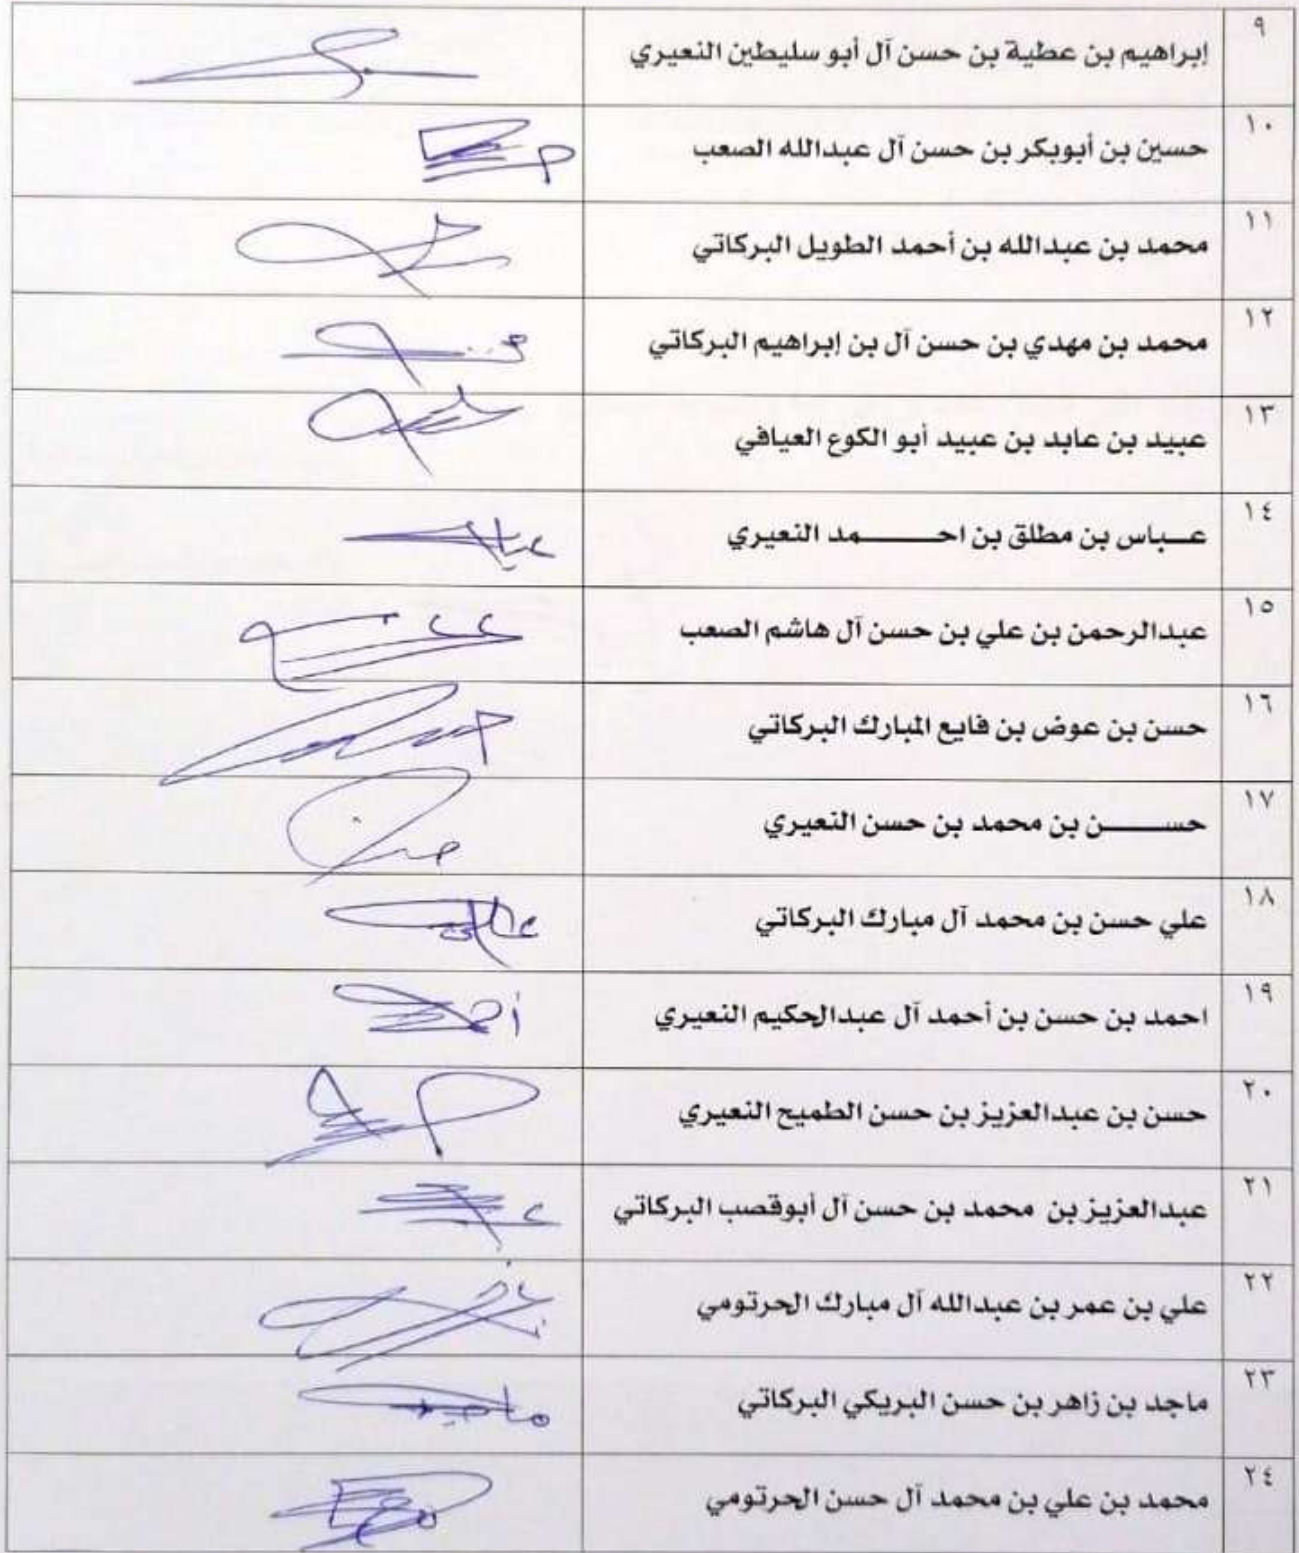 ٩ إبراهيم بن عطية بن حسن آل أبو سليطين النعيري
١٠ حسين بن أبوبكر بن حسن آل عبدالله الصعب
١١ محمد بن عبدالله بن أحمد الطويل البركاتي
١٢ محمد بن مهدي بن حسن آل بن إبراهيم البركاتي
١٣ عبيد بن عابد بن عبيد أبو الكوع العيافي
١٤ عـــباس بن مطلق بن احـــــــــمد النعيري
١٥ عبدالرحمن بن علي بن حسن آل هاشم الصعب
١٦ حسن بن عوض بن فايع المبارك البركاتي
١٧ حســـــــــن بن محمد بن حسن النعيري
١٨ علي حسن بن محمد آل مبارك البركاتي
١٩ احمد بن حسن بن أحمد آل عبدالحكيم النعيري
٢٠ حسن بن عبدالعزيز بن حسن الطميح النعيري
٢١ عبدالعزيز بن محمد بن حسن آل أبوقصب البركاتي
٢٢ علي بن عمر بن عبدالله آل مبارك الحرتومي
٢٣ ماجد بن زاهر بن حسن البريكي البركاتي
٢٤ محمد بن علي بن محمد آل حسن الحرتومي